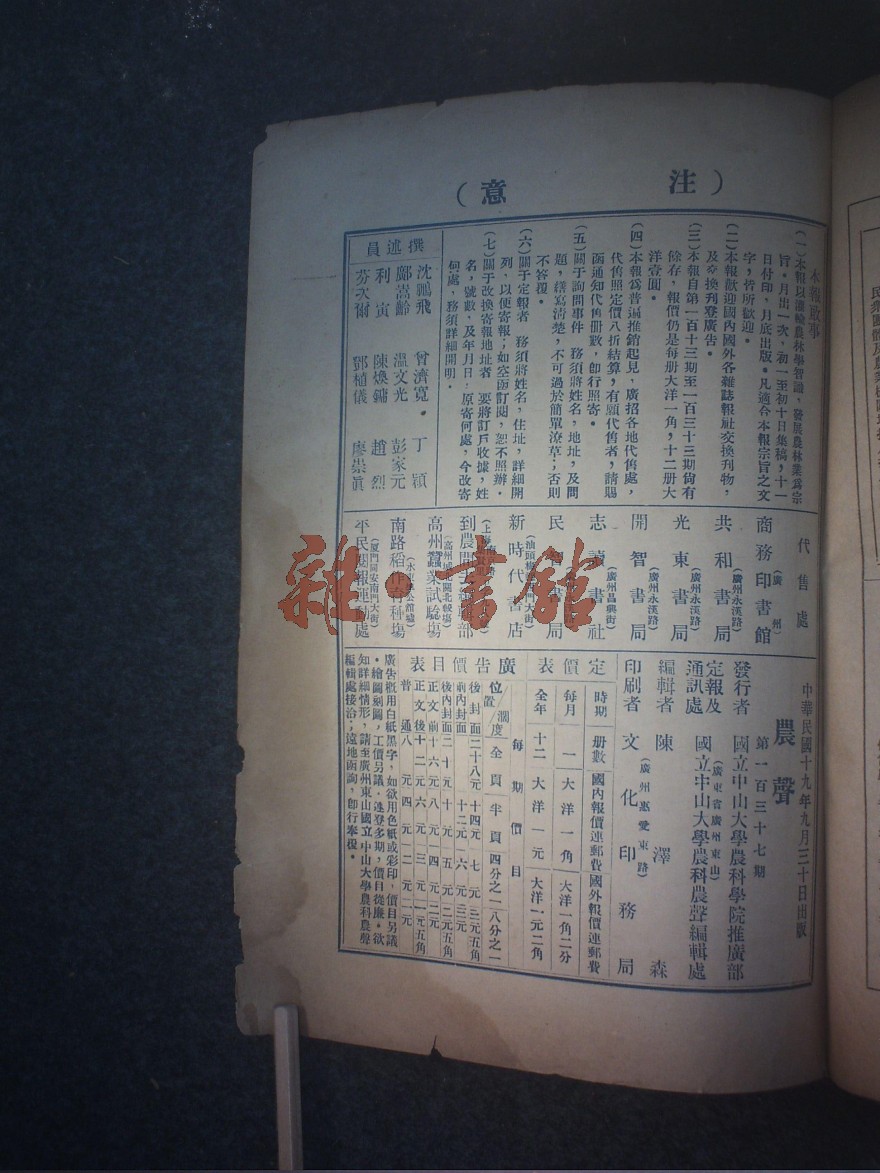 （注意）
本報啟事
（一）本報以灌輸農林學智識，發展農林業為宗
旨，月出一次，初一至初十日集稿，十一
日付印，月底出版。凡適合本報宗旨之文
字，皆所歡迎。
（二）本報歡迎國內國外各雜誌報社交換刊物，
及交換刊登廣告。
（三）本報自第一百十三期至一百三十三期尚有
餘存，報價仍是每册大洋一角，十二册大
洋壹圓。
（四）本報為普遍推銷起見，廣招各地代售處，
代售照定價八折結算，有願代售者，請賜
函通知代售册數，卽行照寄。
（五）關于詢問事件　務須將姓名，地址，及問
題，繕寫清楚，不可過於簡單潦草；否則
不答覆。
（六）關于定報者　務須將姓名，住址，詳細開
列，以便寄報；如空函訂閱，恕不照辦。
（七）關于改換寄報地址者　要將訂戶收據，姓
名，號數，及年月日：原寄何處，今改寄
何處，務須詳細開明。
撰述員
沈鵬飛　曾濟寬・丁　穎
鄺嵩齡　溫文光　彭家元
利　寅　陳煥鏞　趙　烈
芬次爾　鄧植儀　廖崇眞
代售處
商務印書館（廣州）
共和書局（廣州永漢路）
光東書局（廣州永漢路）
開智書局（廣州永漢路）
志讀書社（廣州昌興街）
民　書局
新時代書店（汕頭　門大街）
到農間去編輯部（上海　路）
高州蠶業試驗場（高州城北關北較場）
南路稻作育種場（水　公館墟）
平民週報運銷處（厦門同安南門大街）
中華民國十九年九月三十日出版
農聲
第一百三十七期
發行者　國立中山大學農科學院推廣部
（廣東省廣州東山）
定報及
通訊處　國立中山大學農科農聲編輯處
編輯者　陳澤森
（廣州惠愛東路）
印刷者　文化印務局
定價表
時期　册數　國內報價連郵費　國外報價連郵費
每月　一　大洋一角　大洋一角二分
全年　十二　大洋一元　大洋一元二角
廣告價目表
每期價目
位置／濶度　全頁　半頁　四分之一　八分之一
後封面　二十八元　十四元　七元　三元五角
前內封面　　十二元　六元　三元
後內封面　二十元　十元　五元　二元五角
正文前　十六元　八元　四元　二元
正文後　十二元　六元　三元　一元五角
普通　八元　四元　二元　一元
廣告概用白紙黑字，如欲用色紙或彩印，價目另議
・繪圖刻圖，工價另議・連登多期，價目從廉・欲
知詳細情形，請至廣州東山國立中山大學農科農聲
編輯處接洽；遠地函詢，卽行奉復。
雜・書館